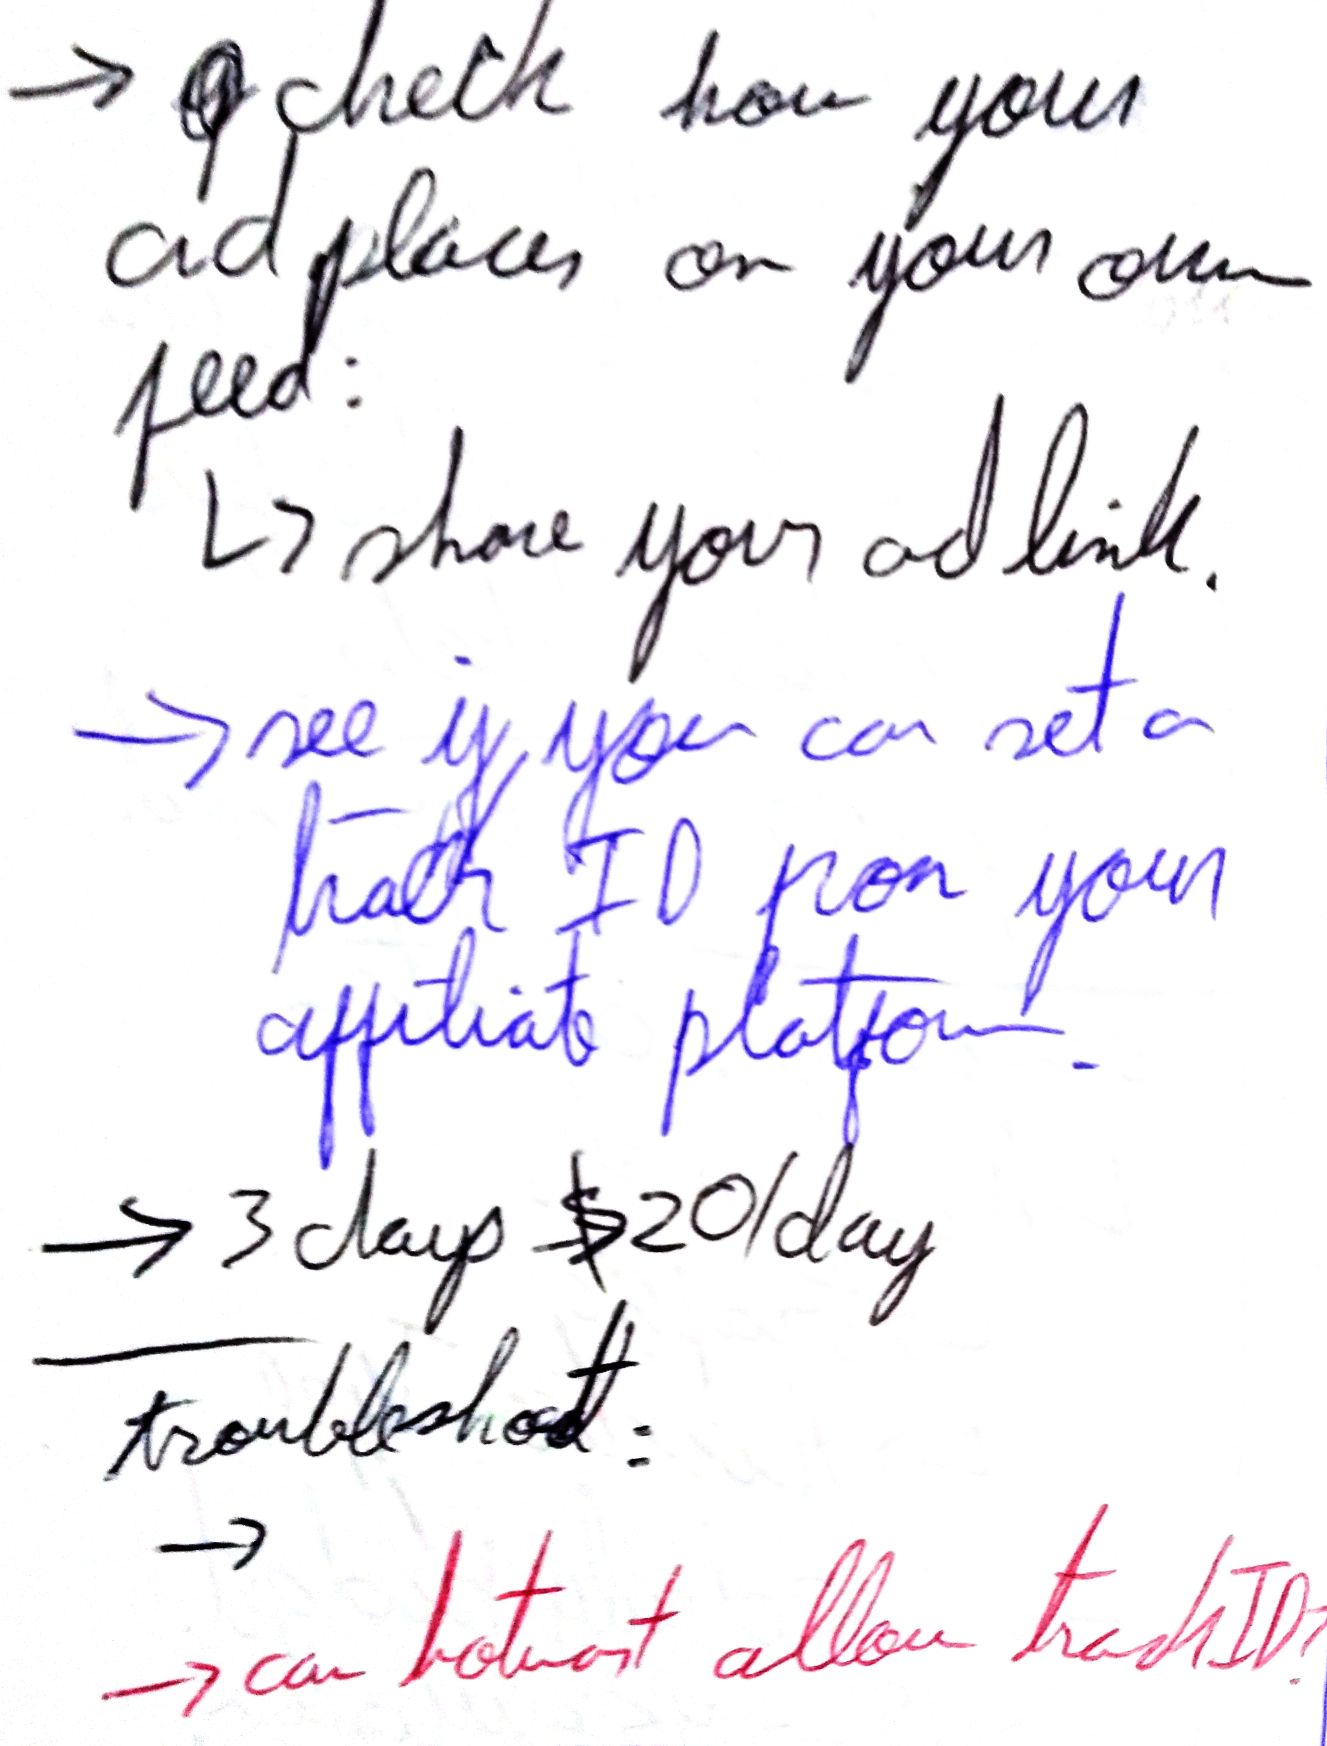 → check how your
ad places on your own
feed:
↳ share your ad link.
→ see if you can set a
track ID from your
affiliate platform.
→ 3 days $20/day
troubleshoot:
→
→ can hotmart allow track ID?